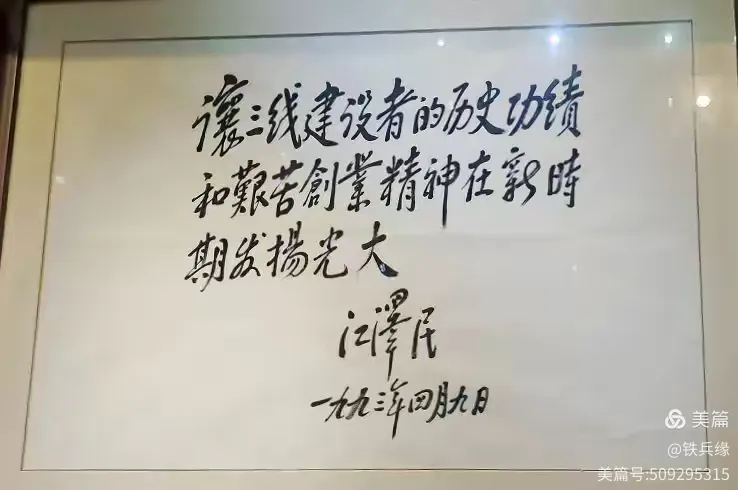 讓三线建设者的历史功績
和艱苦創業精神在新時
期发揚光大
江澤民
一九九三年四月九日
美篇
@铁兵缘
美篇号:509295315